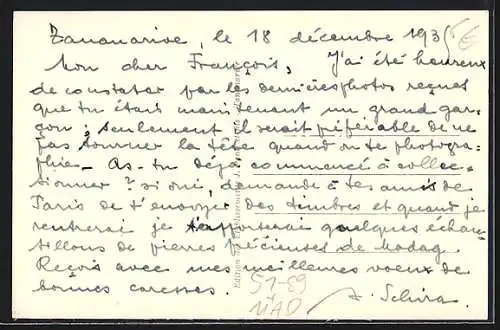 Tananarive, le 18 décembre 193
5€
Mon cher François, J'ai été heureux
de constater par les dernières photos reçues
que tu étais maintenant un grand gar-
çon ; seulement il serait préférable de ne
pas tourner la tête quand on te photogra-
phie. As-tu déjà commencé à collec-
tionner ? si oui, demande à tes amis de
Paris de t'envoyer des timbres et quand je
rentrerai je t'apporterai quelques échan-
tillons de pierres précieuses de Madag.
Reçois avec mes meilleures voeux de
bonnes caresses.
51-89
MAD